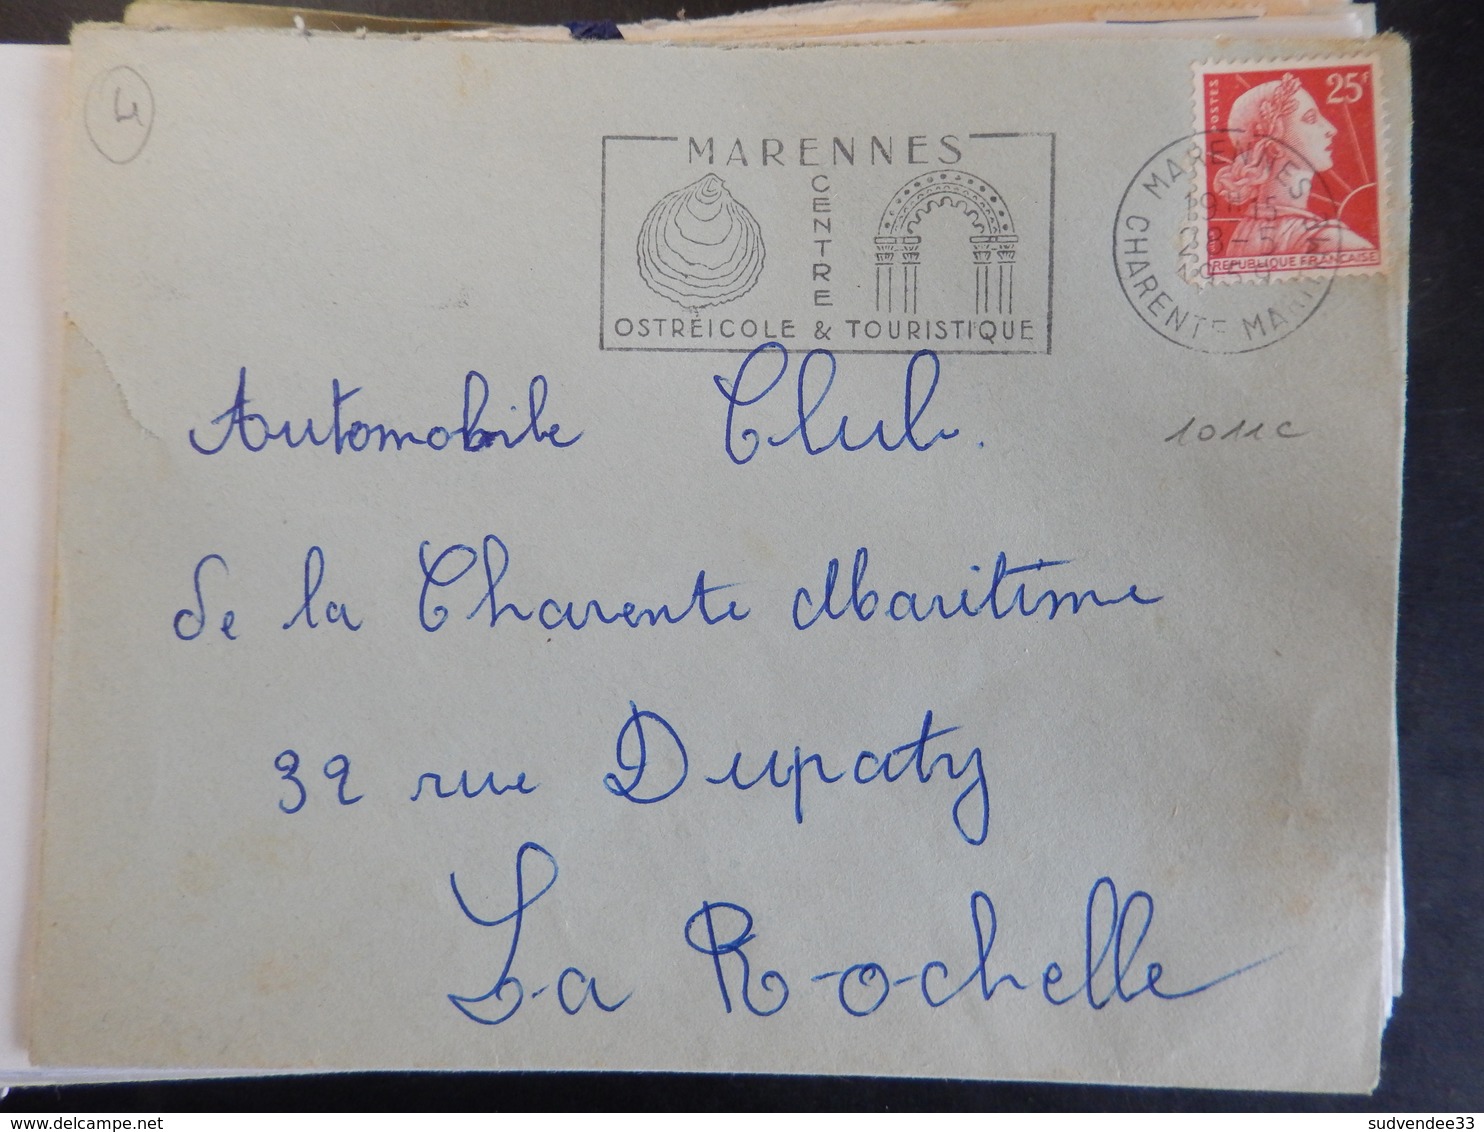 4
MARENNES
CENTRE
OSTRÉICOLE & TOURISTIQUE
25F
POSTES
REPUBLIQUE FRANCAISE
MARENNES
19H15
28-5
CHARENTE
1011c
Automobile Club.
de la Charente Maritime
32 rue Dupaty
La Rochelle
sudvendee33